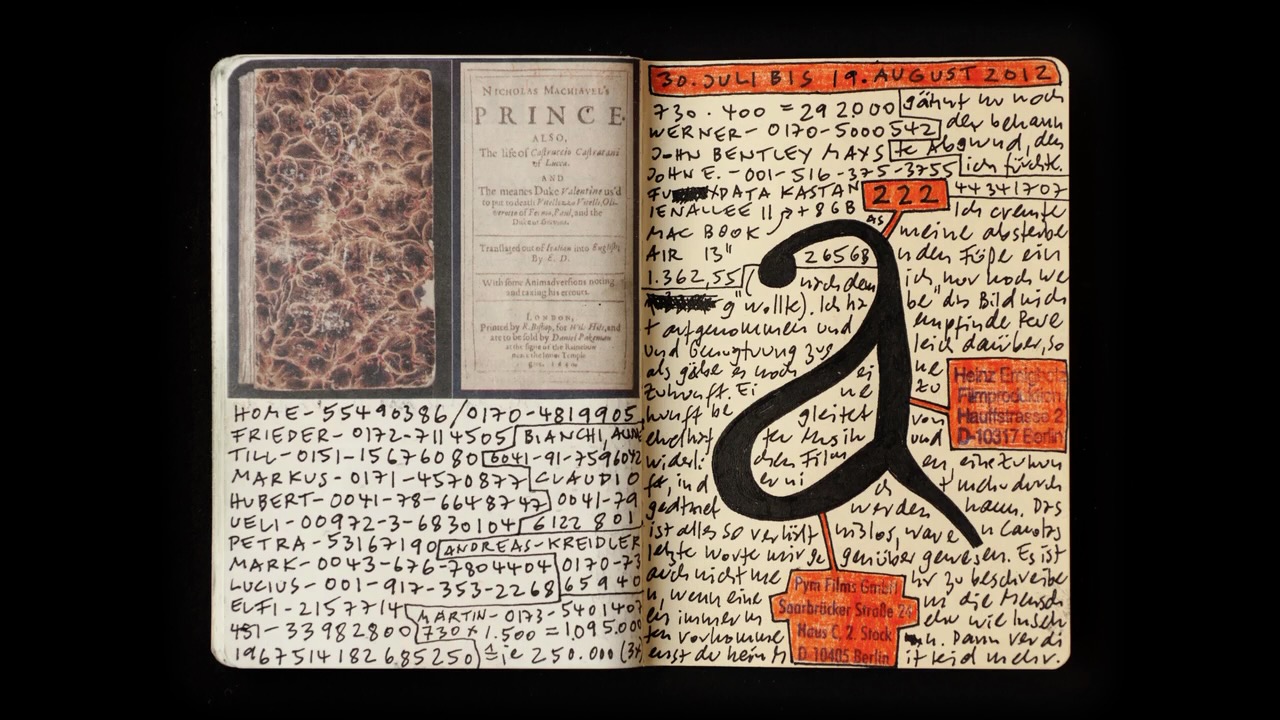 NICHOLAS MACHIAVEL'S
PRINCE.
ALSO,
The life of Castruccio Castracani
of Lucca.
AND
The meanes Duke Valentine us'd
to put to death Vitellozzo Vitelli, Oli-
verotto of Fermo, Paul, and the
Translated out of Italian into English;
By E. D.
With some Animadversions noting
and taxing his errours.
LONDON,
Printed by R. Bishop, for Wil: Hils, and
are to be sold by Daniel Pakeman
at the signe of the Rainebow
neare the Inner Temple
HOME-55490386/0170-4819905
FRIEDER-0172-7114505 BIANCHI, ANNE
TILL-0151-15676080 0041-91-7596042
MARKUS-0171-4570877 CLAUDIO
HUBERT-0041-78-6648747 0041-79
UELI-00972-3-6830104 6122 801
PETRA-53167190 ANDREAS-KREIDLER
MARK-0043-676-7804404 0170-73
LUCIUS-001-917-353-2268 65940
ELFI-2157714 MARTIN-0173-5401407
33982800 730 x 1.500 = 1.095.000
1967514182 6.85250 je 250.000
30. JULI BIS 19. AUGUST 2012
730 . 400 = 292.000 gähnt nur noch
WERNER-0170-5000542 der bekann
JOHN BENTLEY MAYS te Abgrund, den
JOHN E.-001-516-375-3755 ich fürchte.
DATA KASTAN 222 44341707
IENALLEE 11 + 86B Ich cremte
MAC BOOK AS meine absterbe
AIR 13" 26568 nden Füße ein
1.362,55 (nach dem ich nur noch we
g" wollte). Ich ha be" das Bild nich
a
t aufgenommen und empfinde Reue
und Genugtuung zug leich darüber, so
als gäbe es noch ei ne
Zukunft. Ei ne zu
kunft be gleitet von
der Musik und
widerli chen Film en, eine Zukun
ft, in d er ni ch t mehr durch
gedreht werden kann. Das
ist alles so verhält nislos, wäre n Carlos
letzte Worte mir ge genüber gewesen. Es ist
auch nicht me hr zu beschreibe
n, wenn eine m die Mensch
en immer m ehr wie Insek
ten vorkomme n. Dann verdi
enst du kein M itleid mehr.
Heinz Emigholz
Filmproduktion
Hauffstrasse 2
D-10317 Berlin
Pym Films GmbH
Saarbrücker Straße 24
Haus C, 2. Stock
D 10405 Berlin